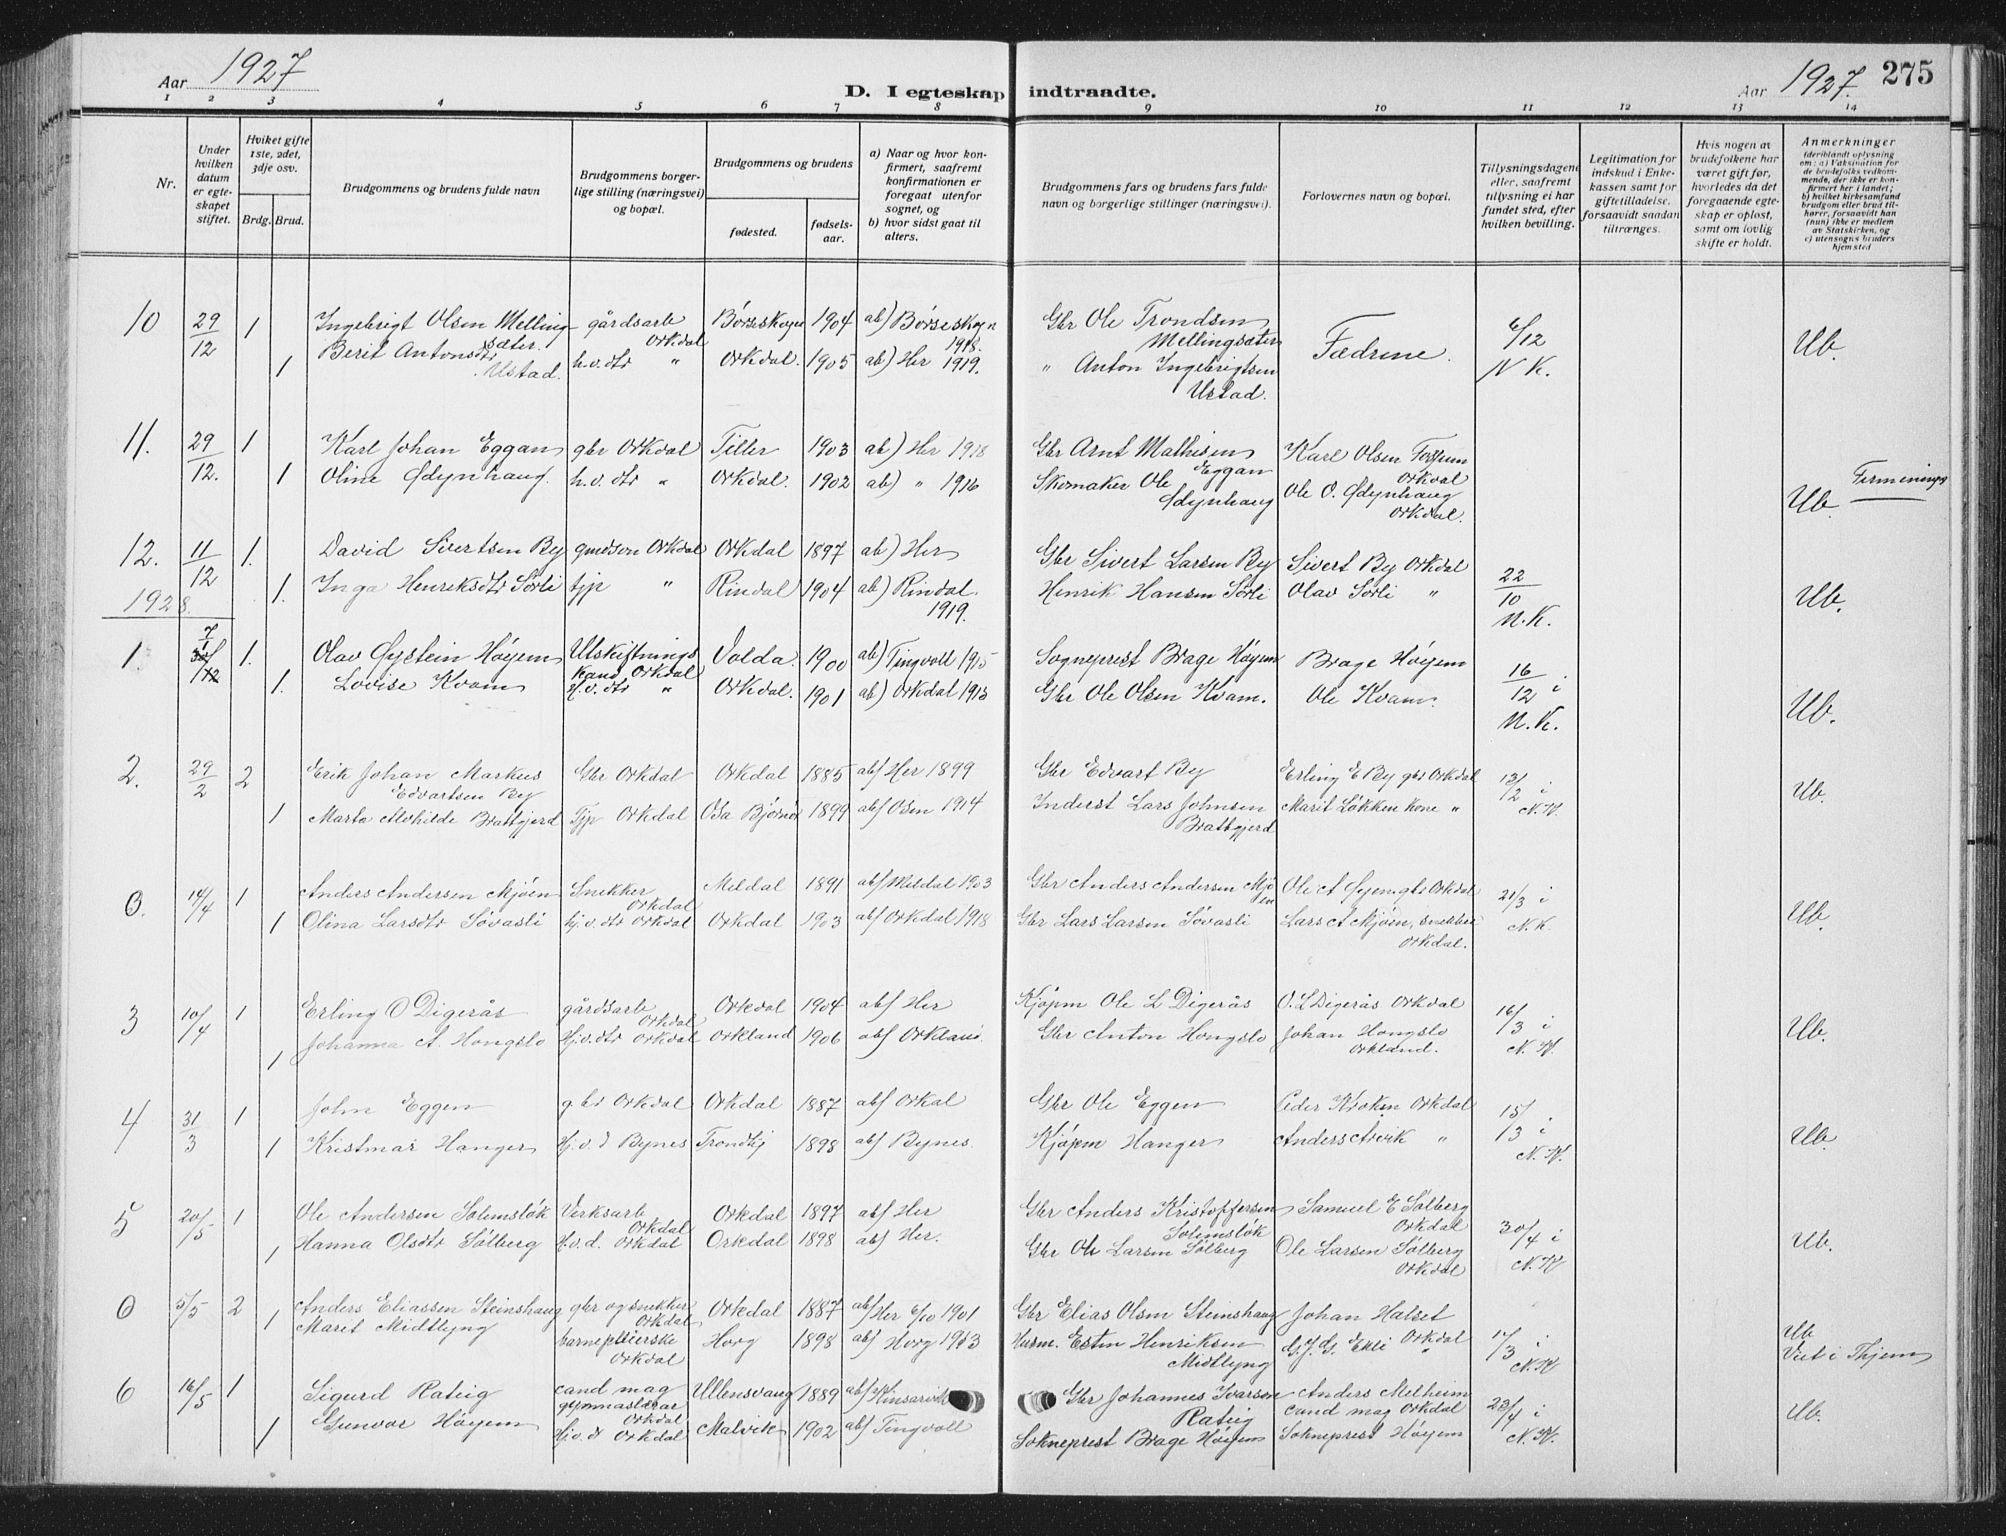 Aar 1927
D. I egteskap indtraadte.
Aar 1927. 275
1 2 3 4 5 6 7 8 9 10 11 12 13 14
Nr.
Under hvilken datum er egteskapet stiftet.
Hviket gifte 1ste, 2det, 3dje osv.
Brdg. Brud.
Brudgommens og brudens fulde navn
Brudgommens borgerlige stilling (næringsvei) og bopæl.
Brudgommens og brudens
fødested. fødselsaar.
a) Naar og hvor konfirmert, saafremt konfirmationen er foregaat utenfor sognet, og
b) hvor sidst gaat til alters.
Brudgommens fars og brudens fars fulde navn og borgerlige stillinger (næringsvei).
Forlovernes navn og bopæl.
Tillysningsdagene eller, saafremt tillysning ei har fundet sted, efter hvilken bevilling.
Legitimation for indskud i Enkekassen samt for giftetilladelse, forsaavidt saadan tiltrænges.
Hvis nogen av brudefolkene har været gift før, hvorledes da det foregaaende egteskap er opløst, samt om lovlig skifte er holdt.
Anmerkninger
(deriblandt oplysning om: a) Vaksination for de brudefolks vedkommende, der ikke er konfirmert her i landet; b) hvilket kirkesamfund brudgom eller brud tilhører, forsaavidt han (hun) ikke er medlem av Statskirken, og c) utensogns bruders hjemsted
10 29/12 1 Ingebrigt Olsen Mellingsæter. gårdsarb Orkdal Børseskogn 1904 ab) Børseskogn 1918. Gbr Ole Trondsen Mellingsæter Fædrene. 6/12 N.K. Ub.
1 Berit Antonsdtr Ustad. h.v.dtr " Orkdal. 1905 ab) Her 1919. " Anton Ingebrigtsen Ustad.
11. 29/12. 1 Karl Johan Eggan gbr Orkdal Tiller 1903 ab) Her 1918 Gbr Arnt Mathisen Eggan Karl Olsen Fossum Orkdal Ub.
1 Oline Ødynhaug. h.v.dtr " Orkdal. 1902 ab) " 1916 Skomaker Ole Ødynhaug Ole O. Ødynhaug Orkdal.
12. 11/12 1. David Sivertsen By gmdsøn Orkdal Orkdal 1897 ab) Her Gbr Sivert Larsen By Sivert By Orkdal 22/10 N.K. Ub.
1. Inga Henriksdtr Sørli tjp " Rindal 1904 ab) Rindal. 1919. Henrik Hansen Sørli Olav Sørli "
1928.
1. 7/1 1. Olav Øystein Høyem Utskiftnings kand Orkdal Volda. 1900 ab) Tingvoll 1915 Sogneprest Brage Høyem Brage Høyem 16/12 i N.K. Ub.
1. Lovise Kvam H.v.dtr " Orkdal. 1901 ab) Orkdal 1915 Gbr Ole Olsen Kvam. Ole Kvam.
2. 29/2 2 Erik Johan Markus Edvartsen By Gbr Orkdal Orkdal 1885 ab) Her 1899 Gbr Edvart By Erling E By gbr Orkdal 12/2 i N.K. Ub.
1 Marta Alvhilde Brattgjerd Tjp Orkdal Osa Bjørnør 1899 ab) Osen 1914 Inderst Lars Johnsen Brattgjerd Marit Løkken kone "
0. 14/4 1 Anders Andersen Mjøen Snekker Orkdal Meldal 1891 ab) Meldal 1903 Gbr Anders Andersen Mjøen Ole A Øyen gbr Orkdal 21/3 i N.K. Ub.
1 Olina Larsdtr Søvasli hj.v.dtr Orkdal Orkdal 1903 ab) Orkdal 1918 Gbr Lars Larsen Søvasli Lars A Mjøen, snekker Orkdal.
3 10/4 1 Erling O Digerås gårdsarb Orkdal Orkdal 1904 ab) Her Kjøpm Ole L Digerås O. L Digerås Orkdal 16/3 i N.K. Ub.
1 Johanna A. Hongslo Hj.v.dtr Orkdal Orkland 1906 ab) Orkland. Gbr Anton Hongslo Johan Hongslo Orkland.
4 31/3 1 John Eggen gbr Orkdal Orkdal 1887 ab) Orkal Gbr Ole Eggen Peder Kroken Orkdal 15/3 i N.K. Ub.
1 Kristmar Hanger Hj.v.d Bynes Trondhj 1898 ab) Bynes. Kjøpm Hanger Anders Arvik "
5 20/5 1 Ole Andersen Solemsløk Verksarb Orkdal Orkdal 1897 ab) Her Gbr Anders Kristoffersen Solemsløk Samuel E Sølberg Orkdal 30/4 i N.K. Ub.
1 Hanna Olsdtr Sølberg H.v.d. Orkdal Orkdal 1898 ab) Her. Gbr Ole Larsen Sølberg Ole Larsen Sølberg Orkdal
0 5/5 2 Anders Eliassen Steinshaug gbr og snekker Orkdal Orkdal 1887 ab) Her 6/10 1901 Gbr Elias Olsen Steinshaug Johan Halset 17/3 i N.K. Ub
1 Marit Midtlyng barnepleierske Orkdal Horg 1898 ab) Horg 1913 Husm. Esten Henriksen Midtlyng G.J.G. Ekli Orkdal Viet i Thjem
6 16/5 1 Sigurd Rateig cand mag gymnastlær Orkdal Ullensvang 1889 ab) Kinsarvik Gbr Johannes Ivarson Rateig Anders Melheim cand mag Orkdal 23/4 i N.K. Ub.
1 Gunvor Høyem Hj.v.d Orkdal Malvik 1902 ab) Tingvoll Sokneprest Brage Høyem Sokneprest Høyem